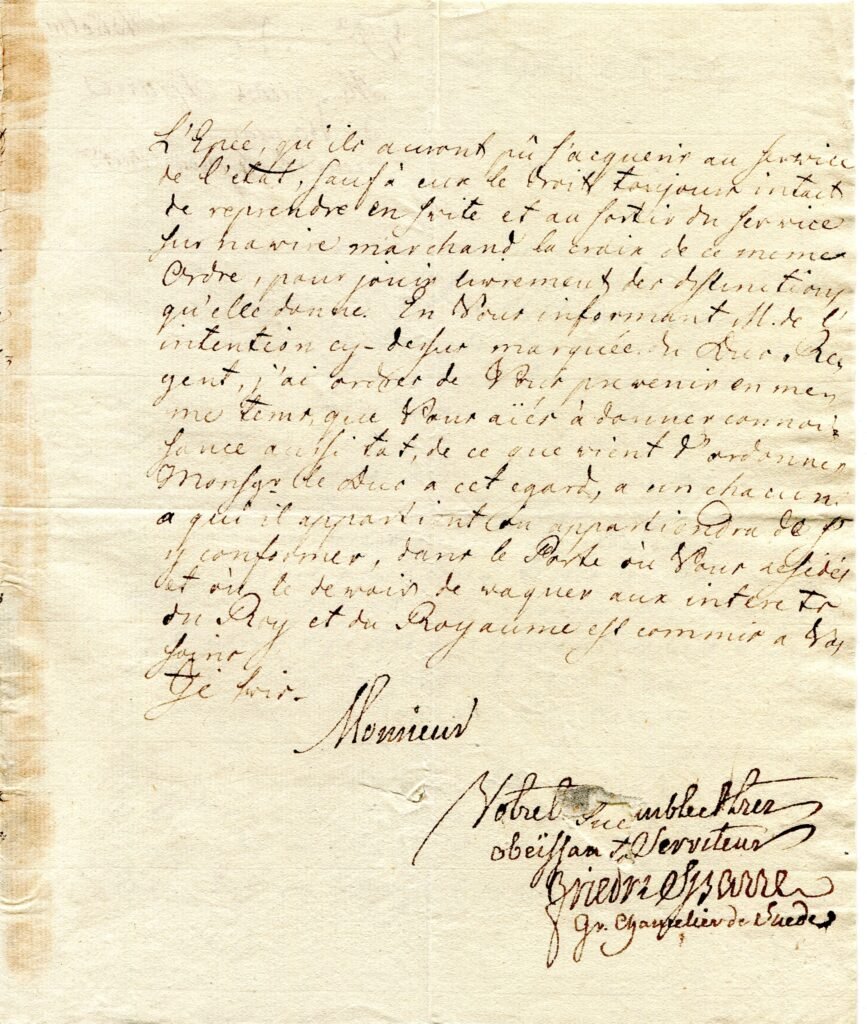 L'Epée, qu'ils auront pû s'acquerir au service
de l'etat, sauf à eux le droit toujours intact
de reprendre en suite et au sortir du service
sur navire marchand la croix de ce meme
Ordre, pour jouir librement des distinctions
qu'elle donne. En Vous informant M. de l'
intention cy-dessus marquée du Duc Re,
gent, j'ai ordres de Vous prevenir en mey
me tems, que Vous aïés à donner connoi-
sance aussi tot, de ce que vient d'ordonner
Monsgr. le Duc a cet egard, a un chacun
a qui il appartient ou appartiendra de s'
y conformer, dans le Porte où Vous residés
et où le devoir de vaquer aux interets
du Roy et du Royaume est commis a Vos
soins
Je suis.
Monsieur
Votre humble & tres
obeïssant Serviteur
Friedr. Sparre
Gr. Chancelier de Suede